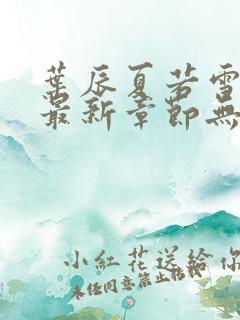 葉辰夏若雪
最新章節無
小紅花送給你
未经同意禁止转载